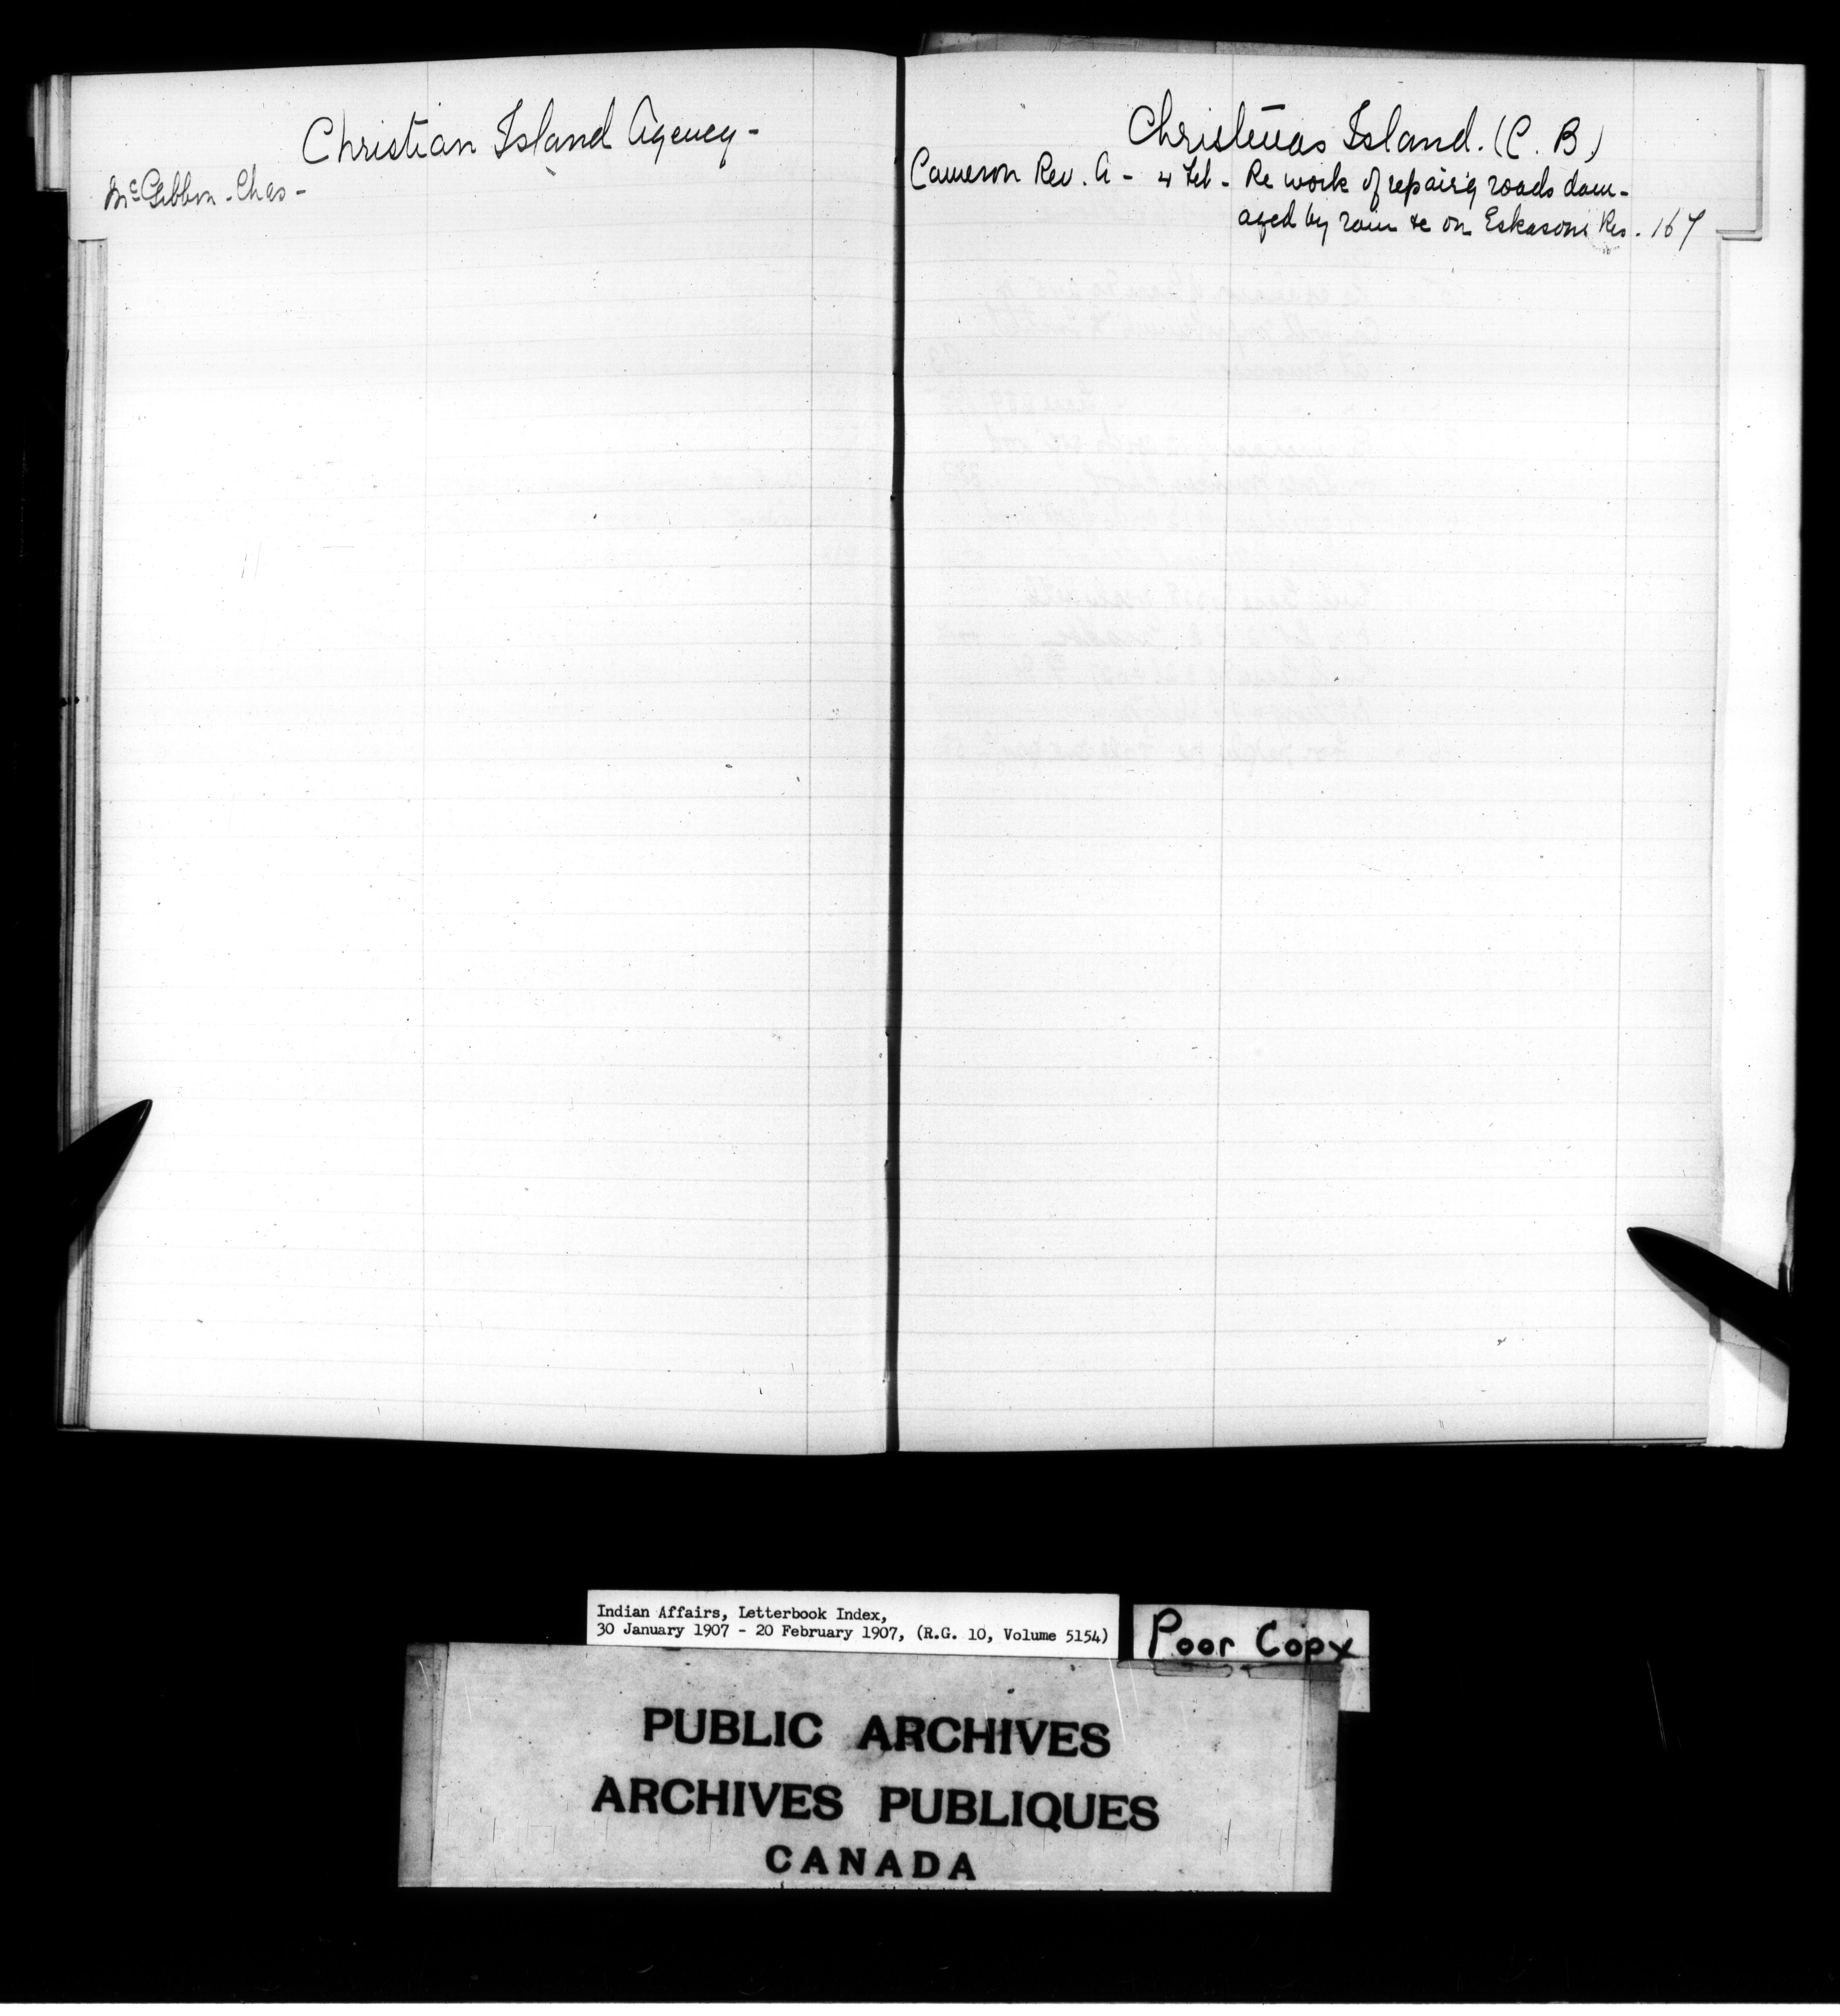 Christian Island Agency -
McGibbon - Chas -
Christmas Island. (C. B)
Cameron Rev. A - 4 Feb - Re work of repair'g roads dam-
aged by rain &c on Eskasoni Res. 167
Indian Affairs, Letterbook Index,
30 January 1907 - 20 February 1907, (R.G. 10, Volume 5154)
Poor Copy
PUBLIC ARCHIVES
ARCHIVES PUBLIQUES
CANADA